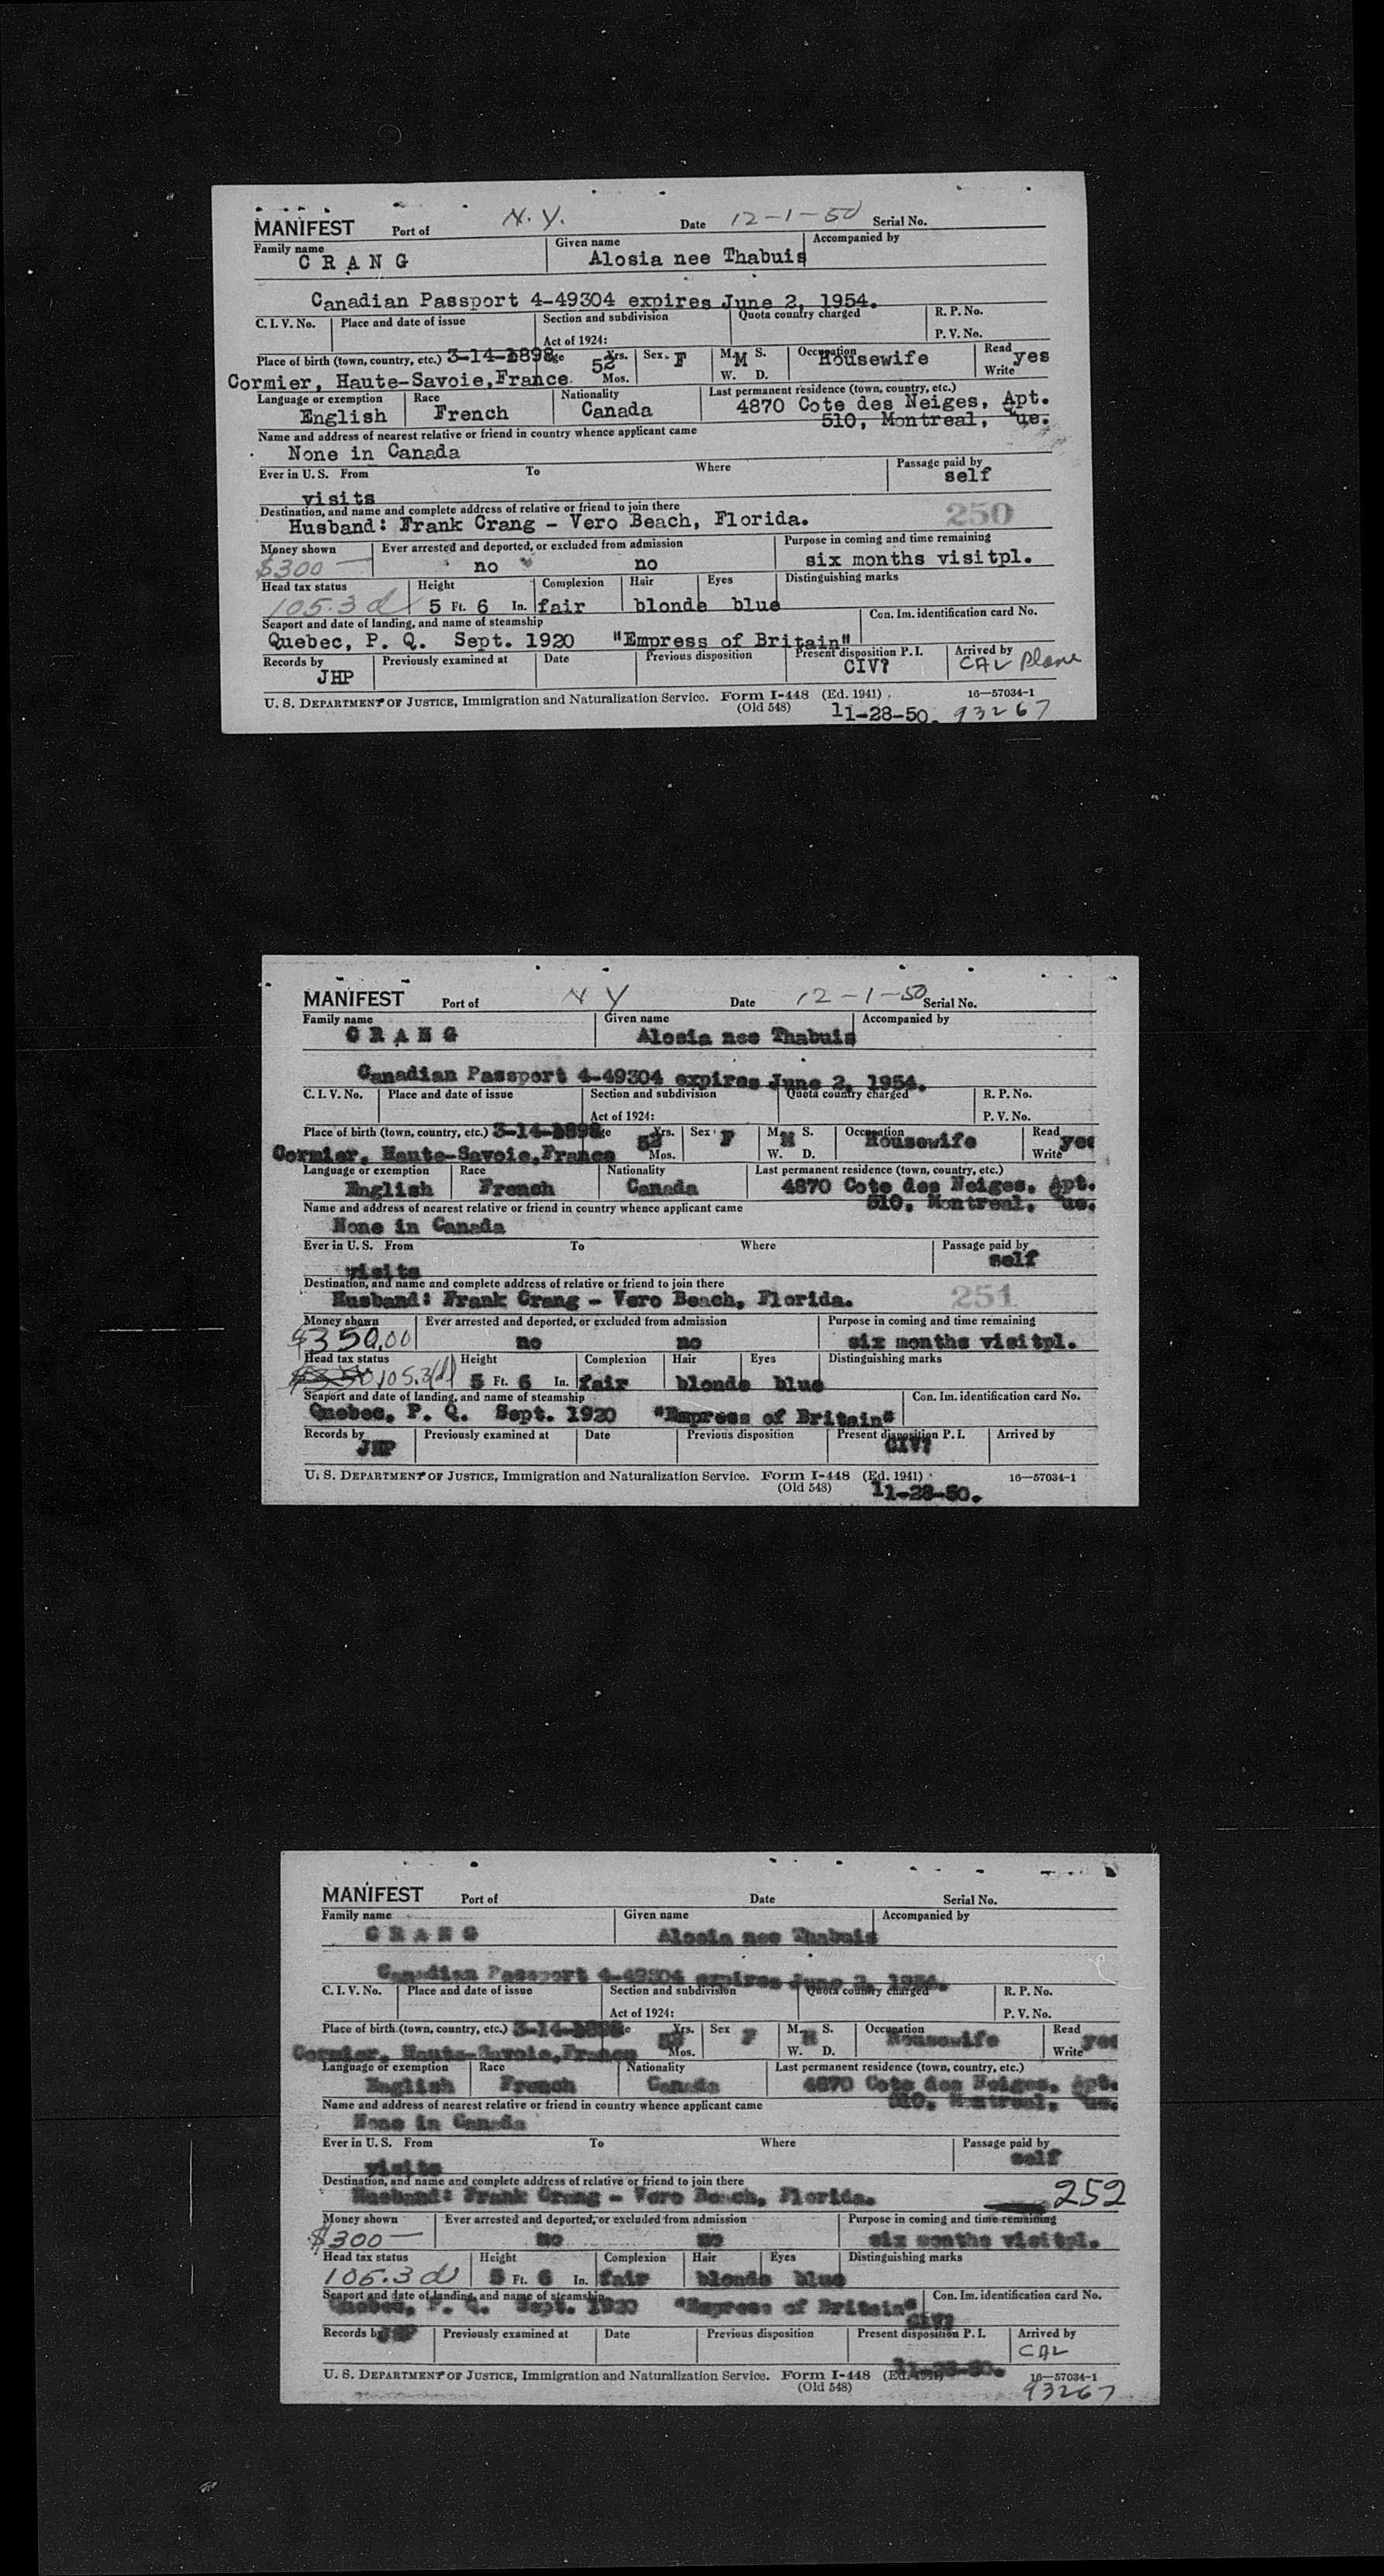 MANIFEST Port of N. Y. Date 12-1-50 Serial No.
Family name Given name Accompanied by
C R A N G Alosia nee Thabuis
Canadian Passport 4-49304 expires June 2, 1954.
C. I. V. No. Place and date of issue Section and subdivision Quota country charged R. P. No.
Act of 1924: P. V. No.
Place of birth (town, country, etc.) 3-14-1898 Age 52 Yrs. Sex F M. M S. Occupation Housewife Read yes
Cormier, Haute-Savoie, France Mos. W. D. Write
Language or exemption Race Nationality Last permanent residence (town, country, etc.)
English French Canada 4870 Cote des Neiges, Apt.
510, Montreal, Que.
Name and address of nearest relative or friend in country whence applicant came
None in Canada
Ever in U. S. From To Where Passage paid by
visits self
Destination, and name and complete address of relative or friend to join there
Husband: Frank Crang - Vero Beach, Florida. 250
Money shown Ever arrested and deported, or excluded from admission Purpose in coming and time remaining
$300 — no no six months visitpl.
Head tax status Height Complexion Hair Eyes Distinguishing marks
105.3 d 5 Ft. 6 In. fair blonde blue
Seaport and date of landing, and name of steamship Con. Im. identification card No.
Quebec, P. Q. Sept. 1920 "Empress of Britain"
Records by Previously examined at Date Previous disposition Present disposition P. I. Arrived by
JHP CIV? CAL Plane
U. S. DEPARTMENT OF JUSTICE, Immigration and Naturalization Service. Form I-448 (Ed. 1941) 16—57034-1
(Old 548) 11-28-50. 93267
MANIFEST Port of N Y Date 12-1-50 Serial No.
Family name Given name Accompanied by
C R A N G Alosia nee Thabuis
Canadian Passport 4-49304 expires June 2, 1954.
C. I. V. No. Place and date of issue Section and subdivision Quota country charged R. P. No.
Act of 1924: P. V. No.
Place of birth (town, country, etc.) 3-14-1898 Age 52 Yrs. Sex F M. M S. Occupation Housewife Read yes
Cormier, Haute-Savoie, France Mos. W. D. Write
Language or exemption Race Nationality Last permanent residence (town, country, etc.)
English French Canada 4870 Cote des Neiges, Apt.
510, Montreal, Que.
Name and address of nearest relative or friend in country whence applicant came
None in Canada
Ever in U. S. From To Where Passage paid by
visits self
Destination, and name and complete address of relative or friend to join there
Husband: Frank Crang - Vero Beach, Florida. 251
Money shown Ever arrested and deported, or excluded from admission Purpose in coming and time remaining
$350.00 no no six months visitpl.
Head tax status Height Complexion Hair Eyes Distinguishing marks
105.3(d) 5 Ft. 6 In. fair blonde blue
Seaport and date of landing, and name of steamship Con. Im. identification card No.
Quebec, P. Q. Sept. 1920 "Empress of Britain"
Records by Previously examined at Date Previous disposition Present disposition P. I. Arrived by
JHP CIV?
U. S. DEPARTMENT OF JUSTICE, Immigration and Naturalization Service. Form I-448 (Ed. 1941) 16—57034-1
(Old 548) 11-28-50.
MANIFEST Port of Date Serial No.
Family name Given name Accompanied by
C R A N G Alosia nee Thabuis
Canadian Passport 4-49304 expires June 2, 1954.
C. I. V. No. Place and date of issue Section and subdivision Quota country charged R. P. No.
Act of 1924: P. V. No.
Place of birth (town, country, etc.) 3-14-1898 Age 52 Yrs. Sex F M. M S. Occupation Housewife Read yes
Cormier, Haute-Savoie, France Mos. W. D. Write
Language or exemption Race Nationality Last permanent residence (town, country, etc.)
English French Canada 4870 Cote des Neiges, Apt.
510, Montreal, Que.
Name and address of nearest relative or friend in country whence applicant came
None in Canada
Ever in U. S. From To Where Passage paid by
visits self
Destination, and name and complete address of relative or friend to join there
Husband: Frank Crang - Vero Beach, Florida. 252
Money shown Ever arrested and deported, or excluded from admission Purpose in coming and time remaining
$300 — no no six months visitpl.
Head tax status Height Complexion Hair Eyes Distinguishing marks
105.3 d 5 Ft. 6 In. fair blonde blue
Seaport and date of landing, and name of steamship Con. Im. identification card No.
Quebec, P. Q. Sept. 1920 "Empress of Britain"
CIV?
Records by JHP Previously examined at Date Previous disposition Present disposition P. I. Arrived by
CAL
U. S. DEPARTMENT OF JUSTICE, Immigration and Naturalization Service. Form I-448 (Ed. 1941) 11-28-50. 16—57034-1
(Old 548) 93267